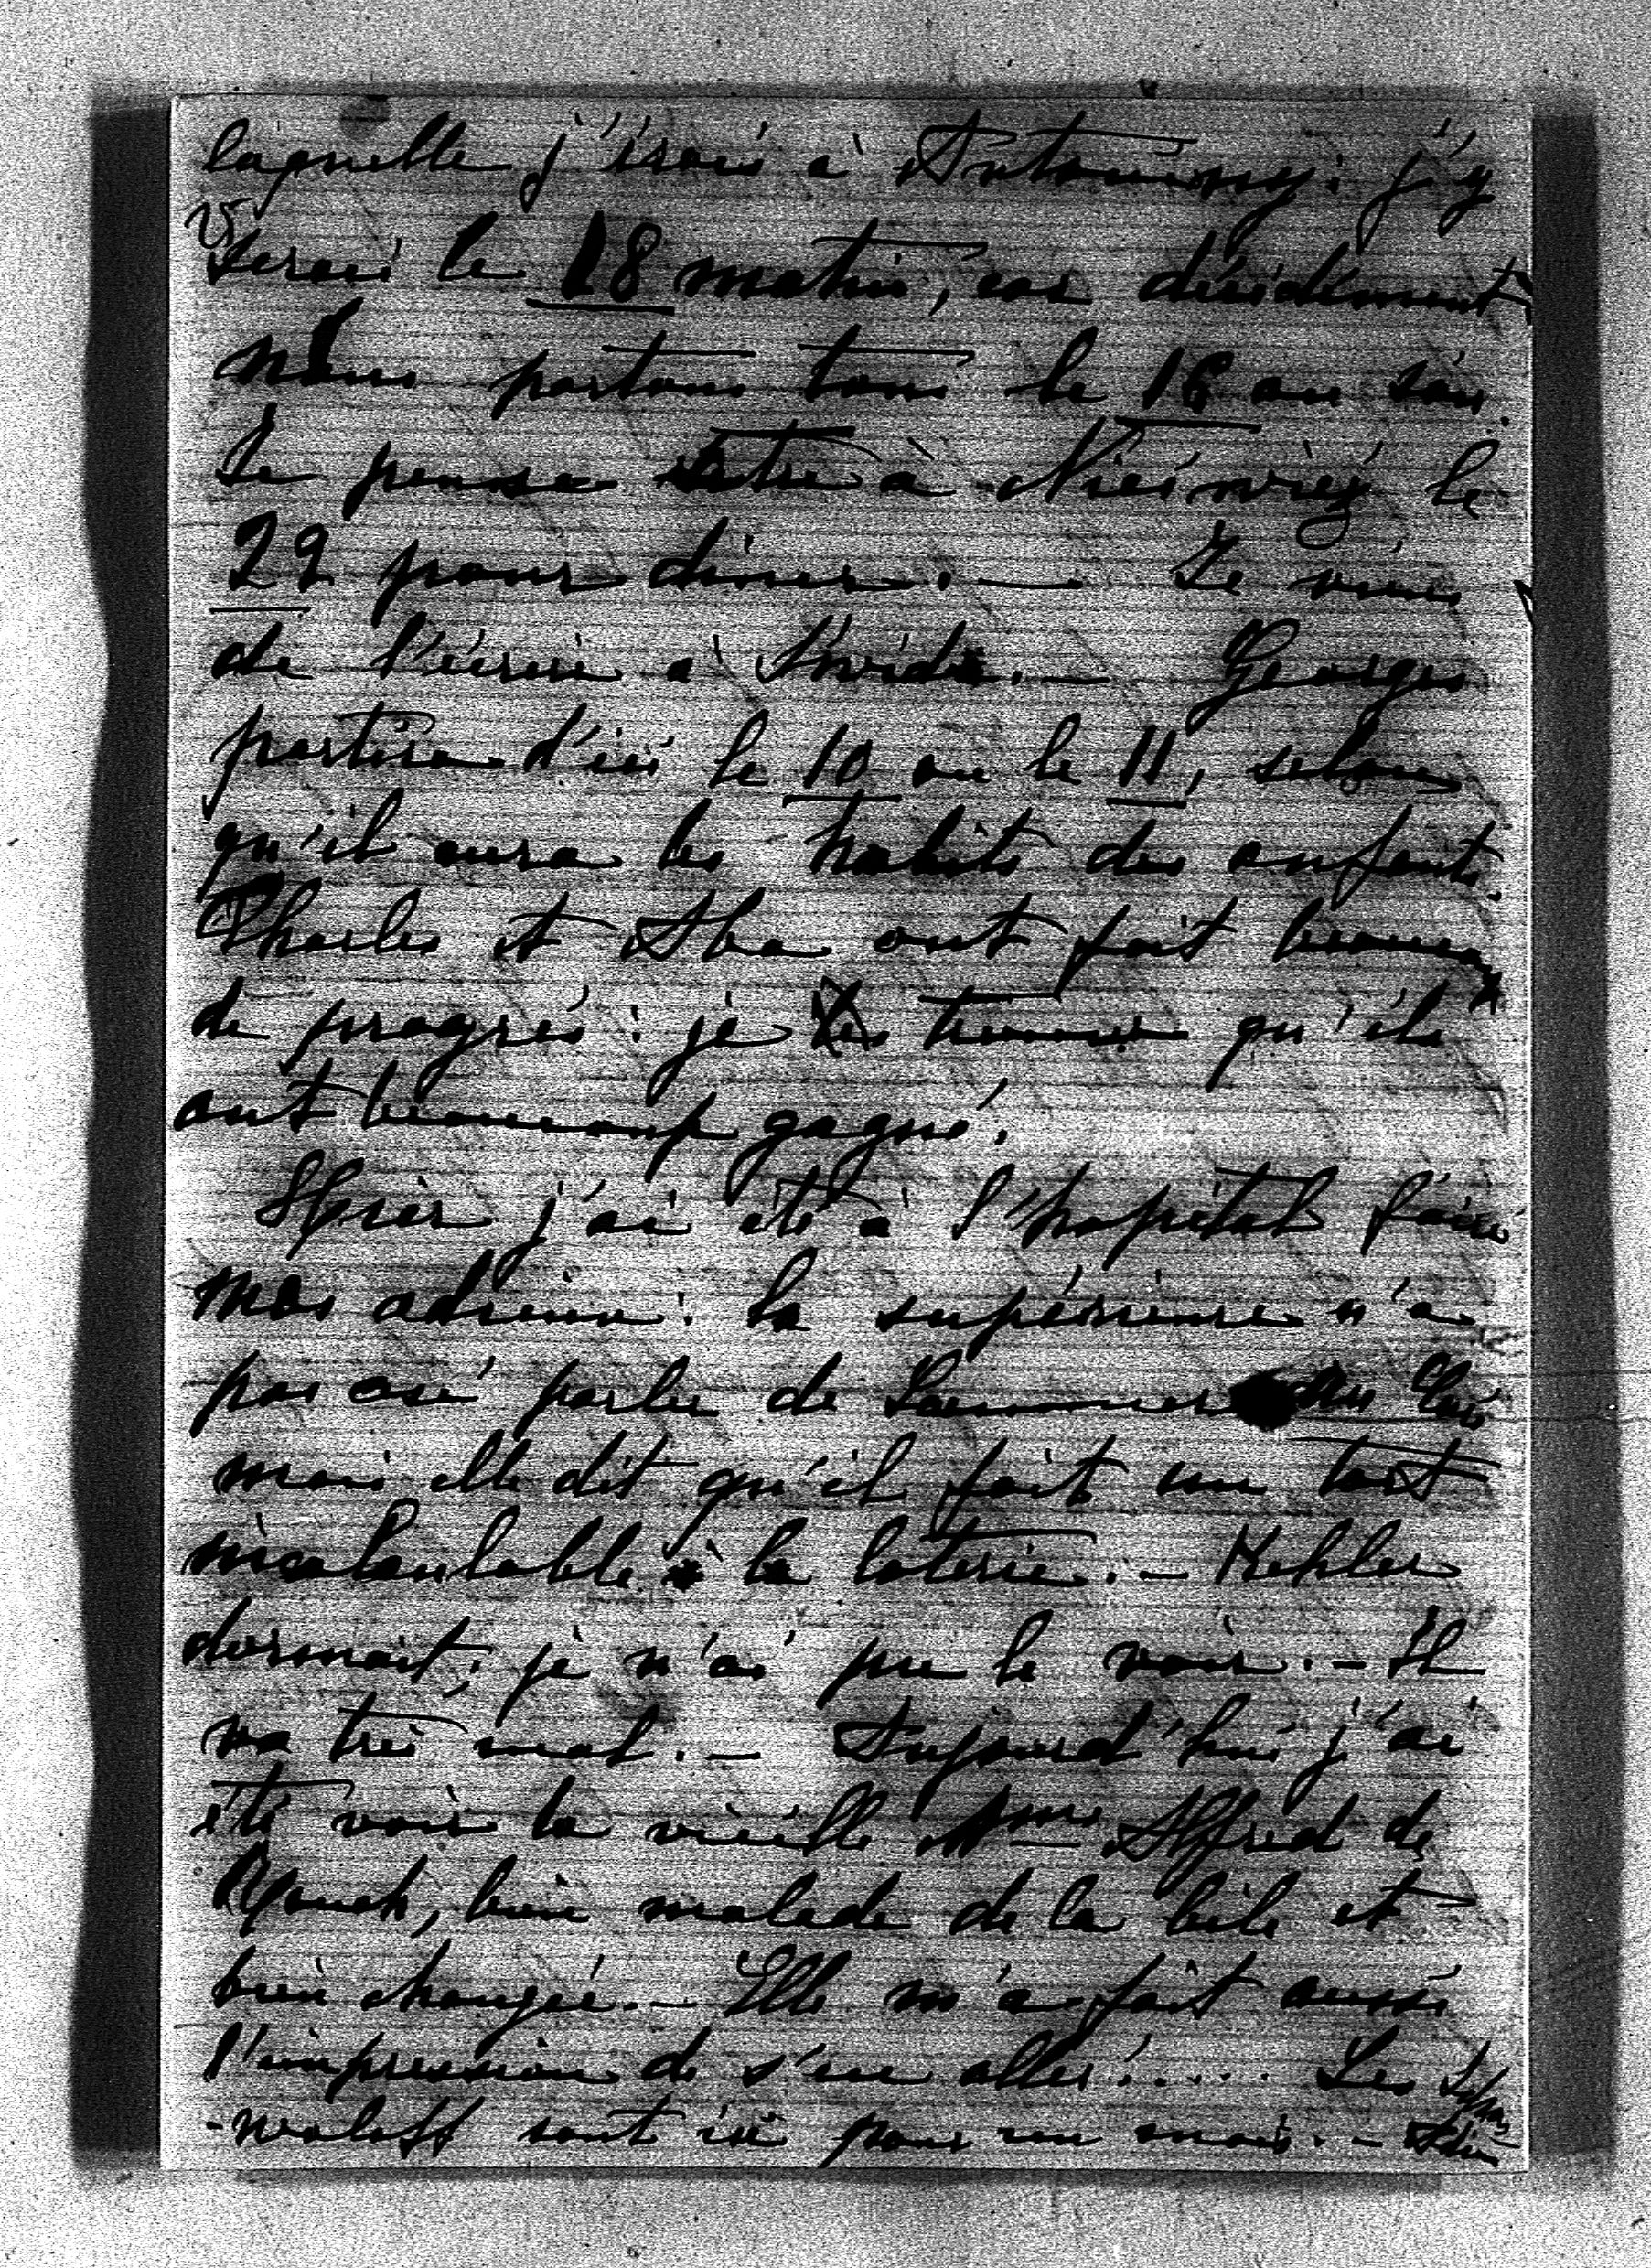 laquelle j'irai à Antoniny: j'y
serai le 18 matin, car décidément
nous partons tous le 16 au soir.
Je pense être à Nieśwież le
29 pour dîner. — Je viens
de l'écrire à .— Georges
partira d'ici le 10 ou le 11, selon
qu'il aura les habits des enfants.
Charles et Aba ont fait beaucoup
de progrès: je trouve qu'ils
ont beaucoup gagné.
Hier j'ai été à l'hopital faire
mes adieux: la supérieure n'a
pas osé parler de
mais elle dit qu'il fait un tort
incalculable à la loterie. — Kehler
dormait; je n'ai pu le voir. — Il
va très mal. — Aujourd'hui j'ai
été voir la vieille Mme Alfred de
, bien malade de la bile et
bien changée. — Elle m'a fait aussi
l'impression de s'en aller!.... Les
-woloff sont ici pour un mois. —